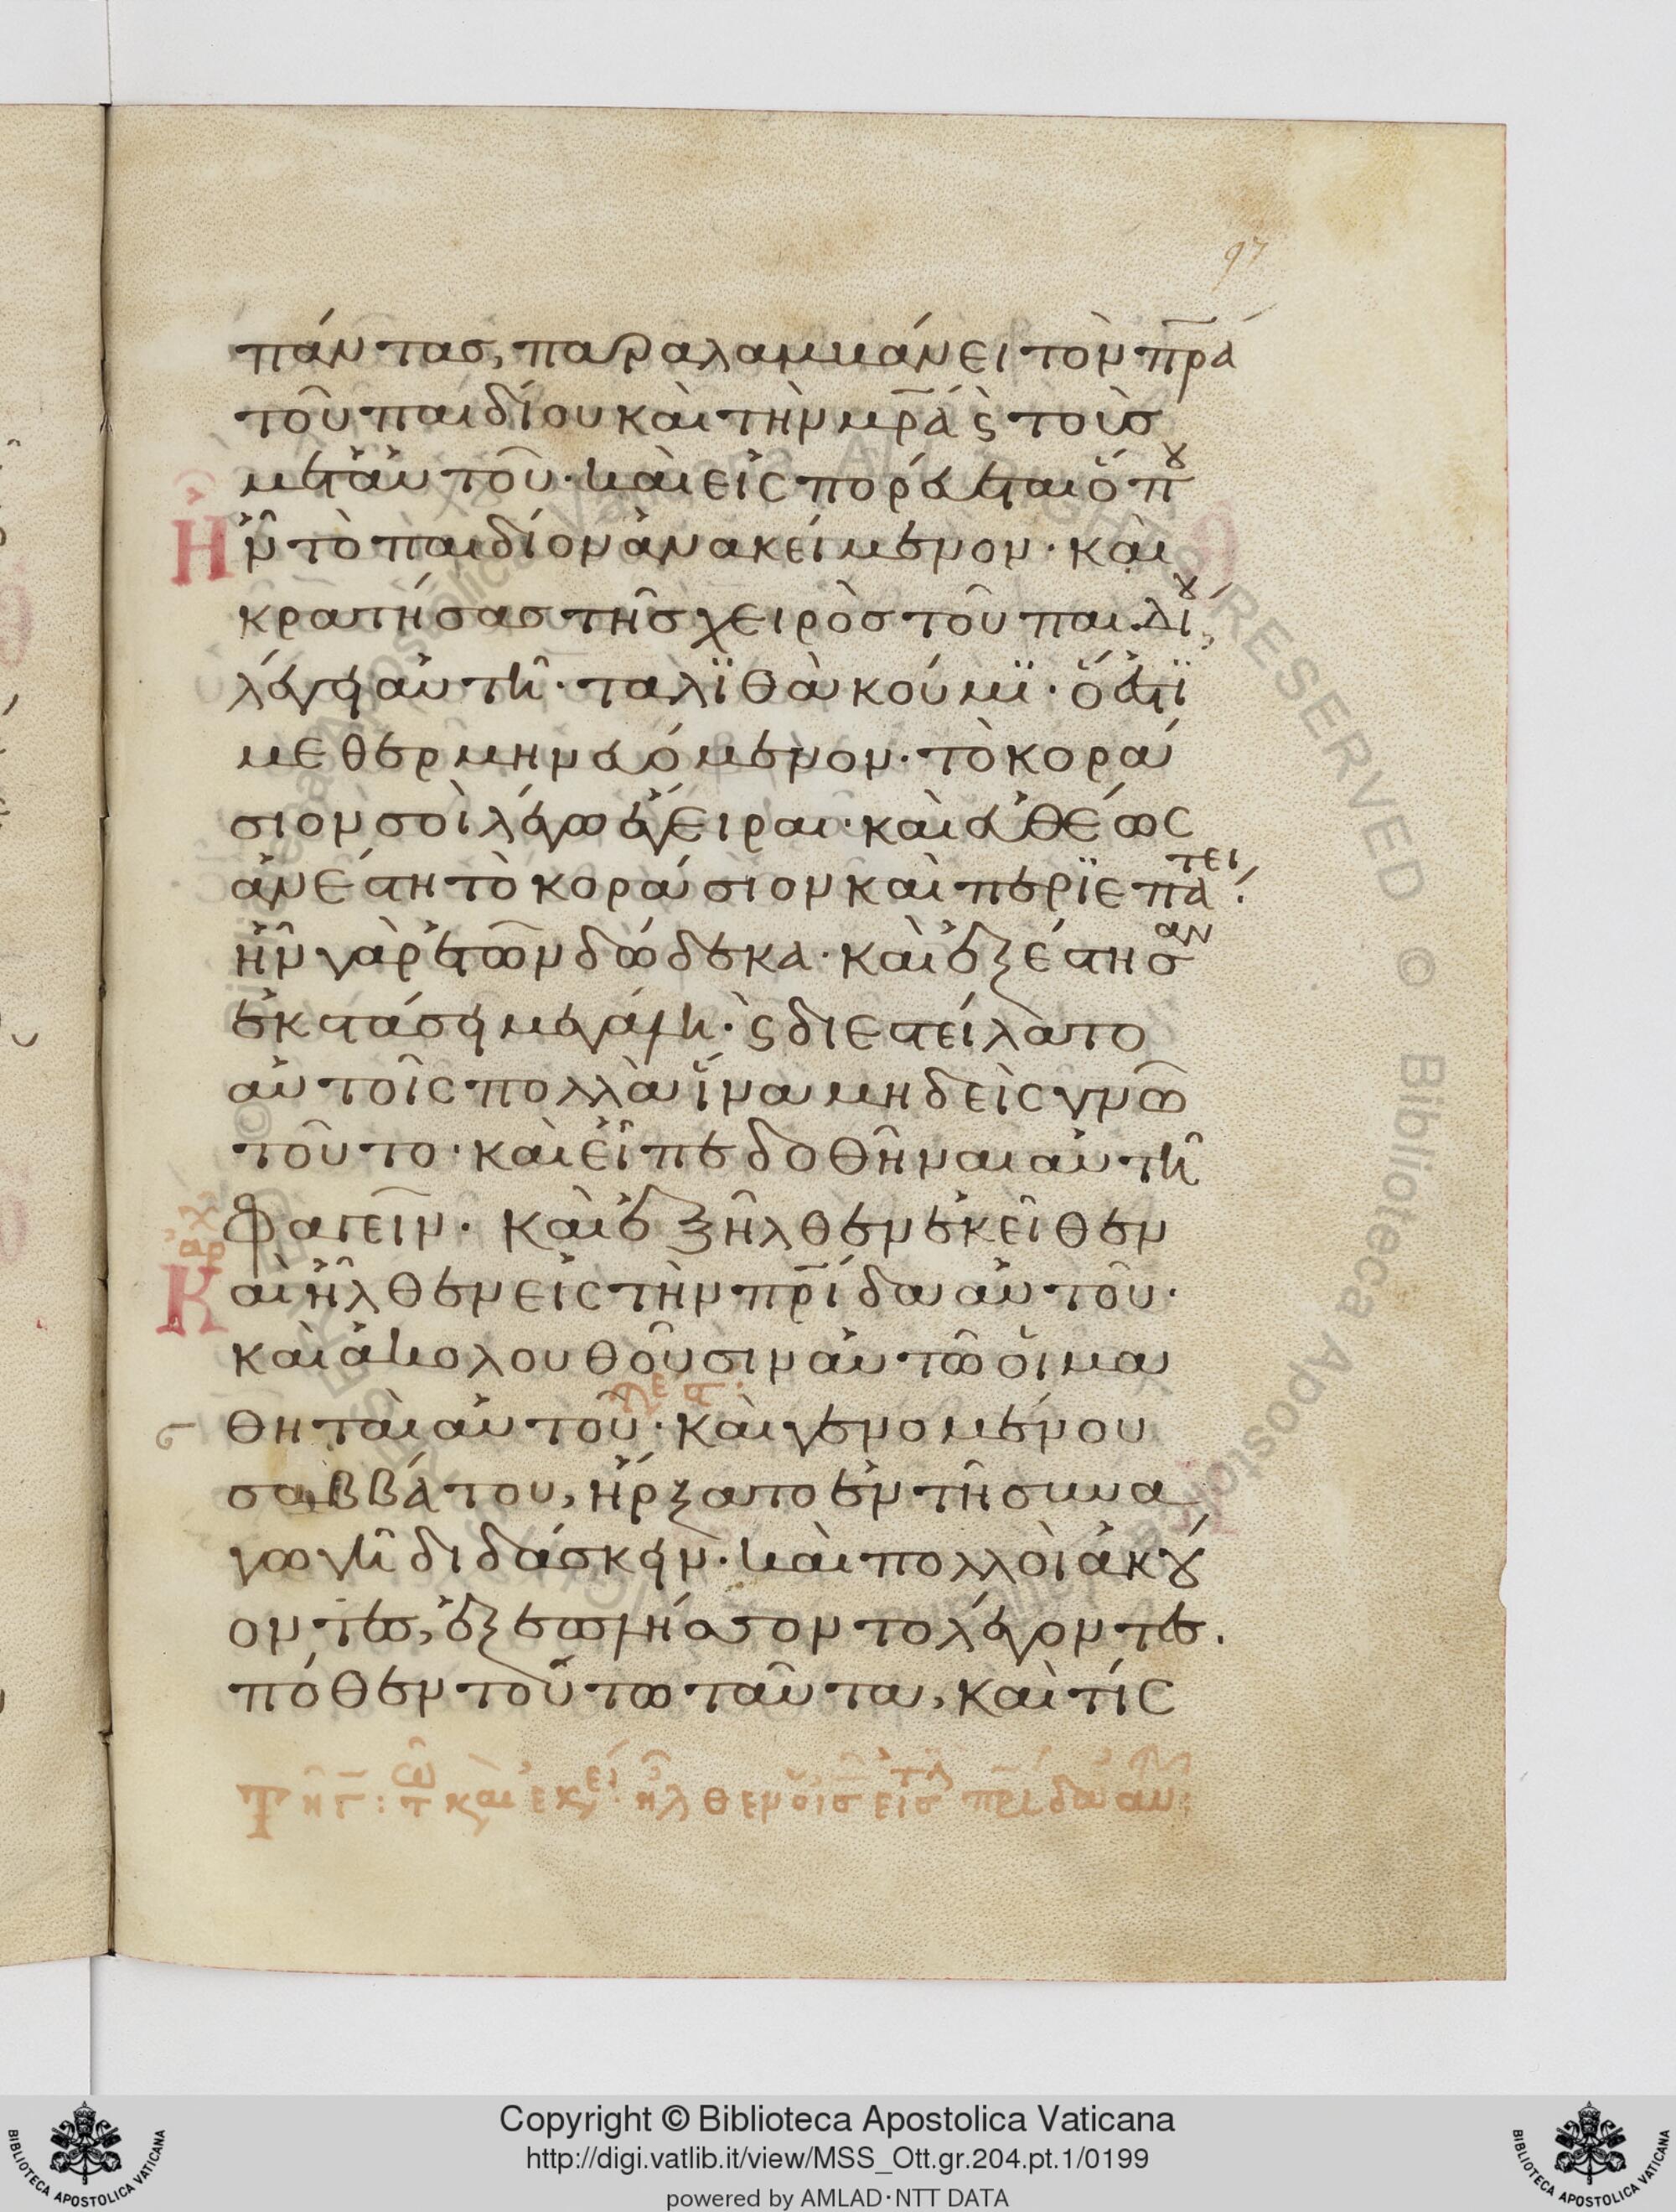 97
πάντας, παραλαμβάνει τὸν πρ̅α
τοῦ παιδίου καὶ τὴν μρ̅α ϛ τοὺσ
μετ' αὐτοῦ· καὶ εἰσπορεύεται ὅπου
Ἦν τὸ παιδίον ἀνακείμενον· καὶ
κρατήσασ τῆσ χειρὸσ τοῦ παιδίου,
λέγει αὐτῆ· ταλϊθὰ κούμϊ· ὅ ἐστϊ
μεθερμηνευόμενον· τὸ κορά
σιον σοὶ λέγω ἔγειραι· καὶ εὐθέως
ἀνέστη τὸ κοράσιον καὶ περϊεπάτει·
ἦν γὰρ ἐτῶν δώδεκα· καὶ ἐξέστησαν
ἐκστάσει μεγάλη· ϛ διεστείλατο
αὐτοῖς πολλὰ ἵνα μηδεὶς γνῶ
τοῦτο· καὶ εἶπε δοθῆναι αὐτῆ
φαγεῖν· καὶ ἐξῆλθεν ἐκεῖθεν
ἀρχ
Καὶ ἦλθεν εἰς τὴν πρ̅ίδα αὐτοῦ·
καὶ ἀκολουθοῦσιν αὐτῶ οἱ μα
θηταὶ αὐτοῦ· καὶ γενομένου
σαββάτου, ἤρξατο ἐν τῆ συνα
γωγῆ διδάσκειν· καὶ πολλοὶ ἀκού
οντες, ἐξεπλήσσοντο λέγοντες.
πόθεν τούτω ταῦτα, καὶ τίς
ἦλθεν ὁ ι̅σ εἰσ τὴν πρ̅ίδα αὐ
BIBLIOTECA APOSTOLICA VATICANA
Copyright © Biblioteca Apostolica Vaticana
http://digi.vatlib.it/view/MSS_Ott.gr.204.pt.1/0199
powered by AMLAD·NTT DATA
BIBLIOTECA APOSTOLICA VATICANA